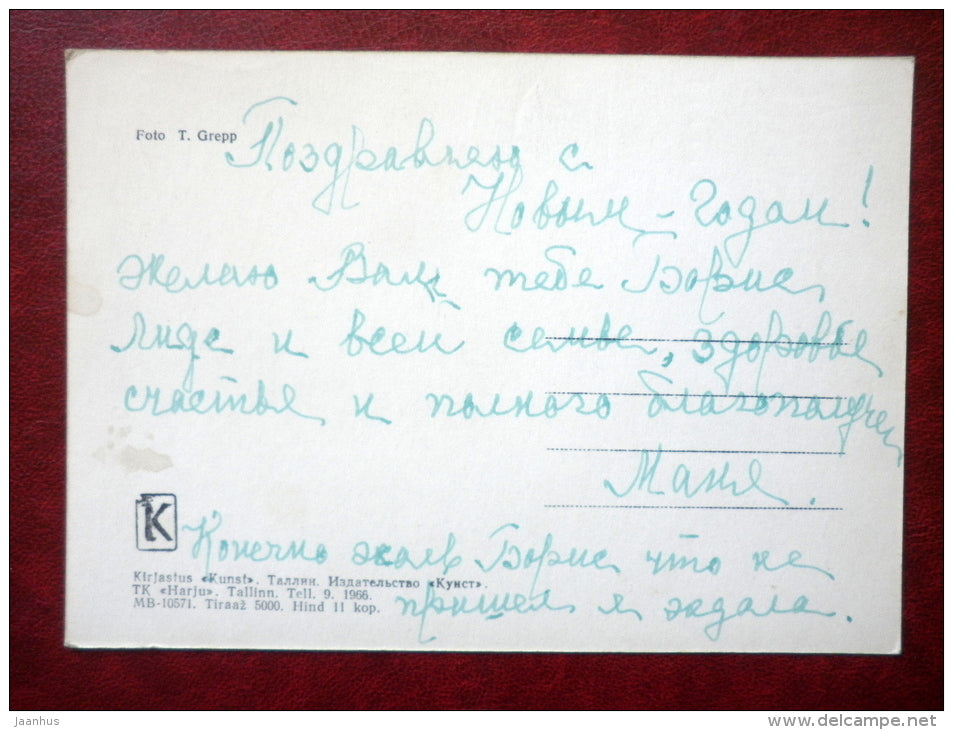 Foto T. Grepp
Поздравляю с
Новым - годом!
Желаю Вам, тебе Борис,
Лиде и всей семье, здоровье
счастья и полного благополучея
Маня.
K
Конечно жаль Борис что не
пришел я ждала.
Kirjastus «Kunst». Таллин. Издательство «Кунст».
TK «Harju». Tallinn. Tell. 9. 1966.
MB-10571. Tiraaž 5000. Hind 11 kop.
Jaanhus
www.delcampe.net